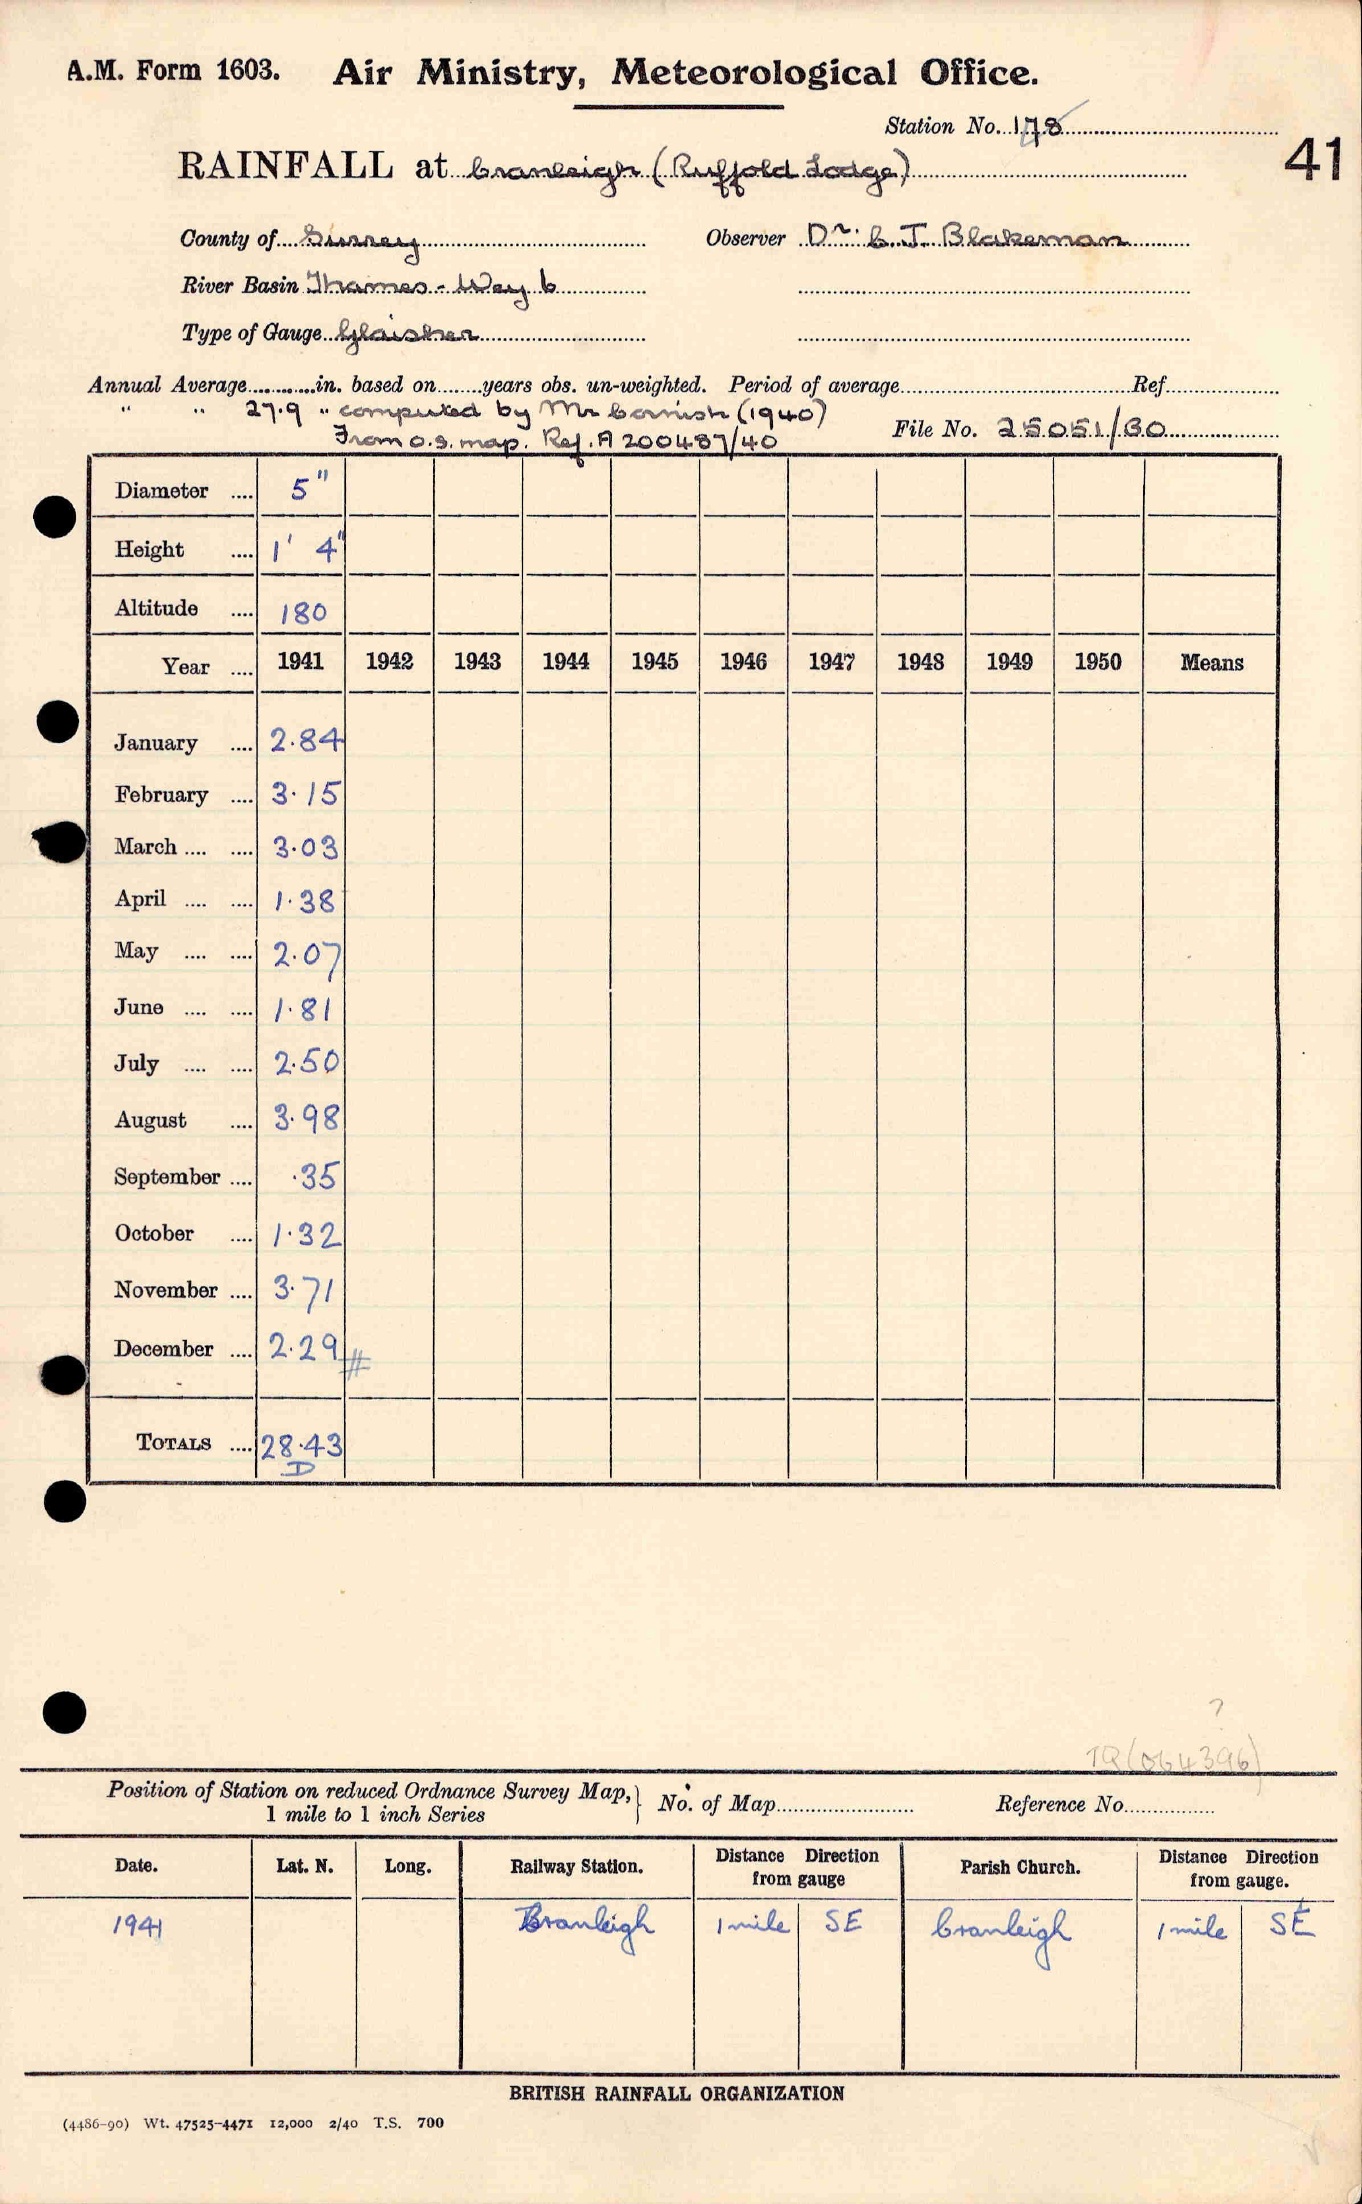 A.M. Form 1603. Air Ministry, Meteorological Office.
Station No. 178
41
RAINFALL at Cranleigh (Ruffold Lodge)
County of Surrey Observer Dr. C. J. Blakeman
River Basin Thames - Wey b
Type of Gauge Glaisher
Annual Average............in. based on........years obs. un-weighted. Period of average........ Ref........
" " 27.9 " computed by Mr Cornish (1940)
From O.S. map. Ref. A 200487/40 File No. 25051/30
Diameter .... 5"
Height .... 1' 4"
Altitude .... 180
Year .... 1941 1942 1943 1944 1945 1946 1947 1948 1949 1950 Means
January .... 2.84
February .... 3.15
March .... .... 3.03
April .... .... 1.38
May .... .... 2.07
June .... .... 1.81
July .... .... 2.50
August .... 3.98
September .... .35
October .... 1.32
November .... 3.71
December .... 2.29 #
TOTALS .... 28.43
D
?
TQ (064396)
Position of Station on reduced Ordnance Survey Map,} No. of Map........ Reference No........
1 mile to 1 inch Series
Date. Lat. N. Long. Railway Station. Distance Direction from gauge Parish Church. Distance Direction from gauge.
1941 Cranleigh 1 mile SE Cranleigh 1 mile SE
BRITISH RAINFALL ORGANIZATION
(4486-90) Wt. 47525-4471 12,000 2/40 T.S. 700